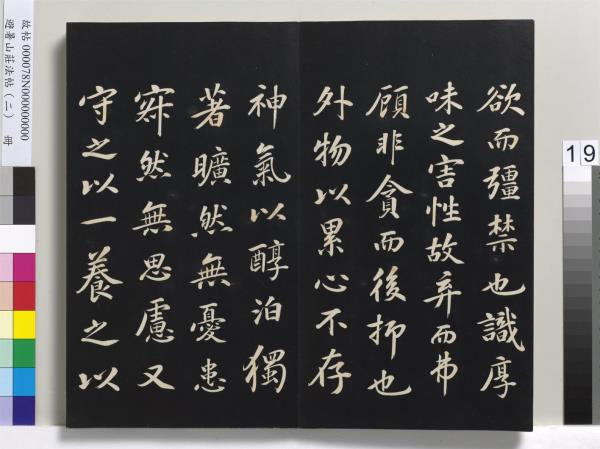 欲而彊禁也識厚
味之害性故弃而弗
顧非貪而後抑也
外物以累心不存
神氣以醇泊獨
著曠然無憂患
寂然無思慮又
守之以一養之以
故帖 000078N000000000
避暑山莊法帖(二) 冊
19